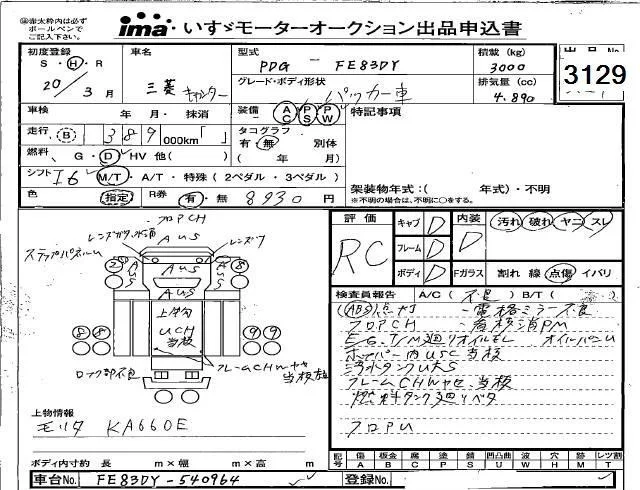 ※赤太枠内は必ず
ボールペンで
ご記入下さい。
ima いすゞモーターオークション出品申込書
初度登録
S・H・R
20/3月
車名
三菱 キャンター
型式
PDG - FE83DY
グレード・ボディ形状
パッカー車
積載(kg)
3000
排気量(cc)
4.890
出品No
3129
車検 年 月・ 抹消
装備 AC PS PW
特記事項
走行 B 389 000km「 」
タコグラフ
有・無 別体
( 年 月)
燃料 G・D・HV 他( )
シフト I6 M/T・A/T・特殊(2ペダル・3ペダル)
架装物年式:( 年式)・不明
※不明の場合は、不明に○をする。
色 指定 R券 有・無 8930円
フロPCH
AUS
レンズワ
ステップパネルU
AUS
AUS
上物凹
UCH
当板
フレームCHWヤセ
当板放
上物情報
モリタ KA660E
評価
RC
キャブ D
フレーム D
ボディ D
内装 D
Fガラス
汚れ 破れ ヤニ スレ
割れ 線 点傷 イバリ
検査員報告 A/C( 不良 ) B/T( )
ABS点灯 - 電格ミラー不良
フロPCH
E/G.T/M廻りオイルモレ オイルパンU
ホッパー内USC当板
汚水タンクUKS
フレームCHWヤセ.当板
燃料タンク廻りベタ
フロPU
ボディ内寸約 長 m×幅 m×高 m
記号 傷 A 板金 B 腐 C 塗 P 錆 S 凹凸曲 U 波 W 穴 H 跡 M レツ割 T
車台No. FE83DY-540964
登録No.